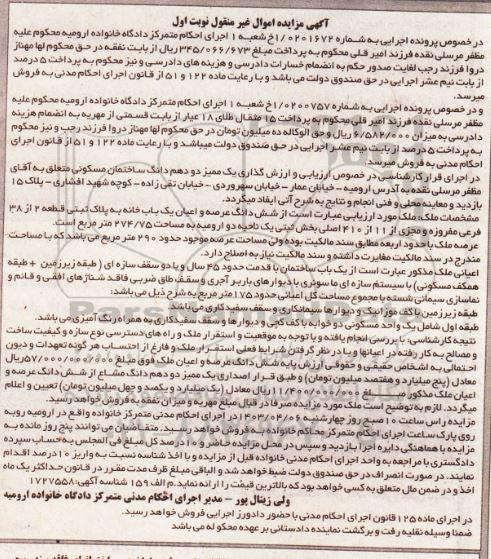 آگهی مزایده اموال غیر منقول نوبت اول
در خصوص پرونده اجرایی به شماره ۰۲۰۱۶۷۲/۱خ شعبه ۱ اجرای احکام متمرکز دادگاه خانواده ارومیه محکوم علیه
مظفر مرسلی نقده فرزند امیر قلی محکوم به پرداخت مبلغ ۳۴۵/۰۶۶/۶۷۳ ریال از بابت نفقه در حق محکوم لها مهناز
دروا فرزند رجب لغایت صدور حکم به انضمام خسارات دادرسی و هزینه های دادرسی و نیز محکوم به پرداخت ۵ درصد
از بابت نیم عشر اجرایی در حق صندوق دولت می باشد و با رعایت ماده ۱۲۲ و ۵۱ از قانون اجرای احکام مدنی به فروش
میرسد.
و در خصوص پرونده اجرایی به شماره ۰۲۰۰۷۵۷/۱خ شعبه ۱ اجرای احکام متمرکز دادگاه خانواده ارومیه محکوم علیه
مظفر مرسلی نقده فرزند امیر قلی محکوم به پرداخت ۱۵ مثقال طلای ۱۸ عیار از بابت قسمتی از مهریه به انضمام هزینه
دادرسی به میزان ۶/۵۸۲/۰۰۰ ریال و حق الوکاله ده میلیون تومان در حق محکوم لها مهناز دروا فرزند رجب و نیز محکوم
به پرداخت ۵ درصد از بابت نیم عشر اجرایی در حق صندوق دولت میباشد و با رعایت ماده ۱۲۲ و ۵۱ از قانون اجرای
احکام مدنی به فروش میرسد.
در اجرای قرار کارشناسی در خصوص ارزیابی و ارزش گذاری یک ممیز دو دهم دانگ ساختمان مسکونی متعلق به آقای
مظفر مرسلی نقده به آدرس ارومیه - خیابان عمار - خیابان سهروردی - خیابان تقی زاده - کوچه شهید افشاری - پلاک ۱۵
بازدید و معاینه محلی و فنی انجام و نتایج به شرح آتی ایفاد میگردد.
مشخصات ملک: ملک مورد ارزیابی عبارت است از شش دانگ عرصه و اعیان یک باب خانه به پلاک ثبتی قطعه ۲ از ۳۸
فرعی مفروزه و مجزی از ۱۱ از ۴۱۰ اصلی بخش ثبتی یک ناحیه دو ارومیه به مساحت ۲۷۴/۷۵ متر مربع است.
عرصه ملک با حدود اربعه مطابق سند مالکیت بوده ولی مساحت عرصه موجود حدود ۲۹۰ متر مربع می باشد که با مساحت
مندرج در سند مالکیت مغایرت داشته و سند مالکیت نیاز به اصلاح دارد.
اعیانی ملک مذکور عبارت است از یک باب ساختمان با قدمت حدود ۴۵ سال و با دو سقف سازه ای (طبقه زیرزمین + طبقه
همکف مسکونی) با سیستم سازه ای ما سونری با دیوارهای باربر آجری وسقف طاق ضربی فاقد شناژهای افقی و قائم و
نماسازی سیمانی شسته با مجموع مساحت کل اعیانی حدود ۱۷۵ متر مربع به شرح ذیل می باشد:
طبقه زیر زمین با کف موزاییک و دیوارها سیمانکاری و سقف سفیدکاری می باشد
طبقه اول شامل یک واحد مسکونی دو خوابه با کف گچی و دیوار ها و سقف سفیدکاری به همراه رنگ آمیزی می باشد.
نتیجه کارشناسی: با بررسی انجام یافته و با توجه به موقعیت و استقرار ملک و راه های دسترسی نوع سازه و کیفیت ساخت
و مصالح به کار رفته در اعیانها و با در نظر گرفتن شرایط فعلی استقرار ملک و فارغ از احتساب هر گونه تعهدات و دیون
احتمالی به اشخاص حقیقی و حقوقی ارزش پایه شش دانگ عرصه و اعیان ملک فوق مبلغ ۵۷/۰۰۰/۰۰۰/۰۰۰ریال
معادل (پنج میلیارد و هفتصد میلیون تومان) و طبق قرار اصداری یک ممیز دو دهم دانگ مشاع از شش دانگ عرصه و
اعیان ملک مذکور مبلغ ۱۱/۴۰۰/۰۰۰/۰۰۰ریال معادل (یک میلیارد و یکصد و چهل میلیون تومان) تعیین و اعلام
میگردد. لازم به توضیح است ملک مورد مزایده صرفا در قبال مبلغ مهریه و میزان نفقه به فروش خواهد رسید.
مزایده راس ساعت ۱۰ صبح روز چهارشنبه ۱۴۰۳/۰۴/۰۶ در اجرای احکام مدنی متمرکز خانواده واقع در ارومیه روبه
روی پارک ساعت اجرای احکام متمرکز محاکم خانواده به فروش خواهد رسید. متقاضیان می توانند پنج روز مانده به
مزایده با هماهنگی دایره اجرا بازدید و سپس در محل مزایده حاضر و ده درصد کل مبلغ فی المجلس به حساب سپرده
دادگستری با مراجعه به واحد اجرای احکام مدنی خانواده قبل از مزایده و با اخذ شناسه نسبت به واریز ۱۰درصد اقدام
نمایند. در صورت انصراف در حق صندوق دولت ضبط خواهد شد و الباقی مبلغ ظرف مدت مقرر در قانون حداکثر یک ماه
اخذ و در ضمن مال متعلق به کسی خواهد بود که بالاترین قیمت را ارائه نماید.م الف ۱۵۹ شناسه آگهی: ۱۷۲۷۵۵۸
ولی زینال پور - مدیر اجرای احکام مدنی متمرکز دادگاه خانواده ارومیه
در اجرای ماده ۱۲۵ قانون اجرای احکام مدنی با حضور دادورز اجرایی فروش خواهد رسید.
ضمنا وسیله نقلیه رفت و برگشت نماینده دادستانی بر عهده محکوم له می باشد